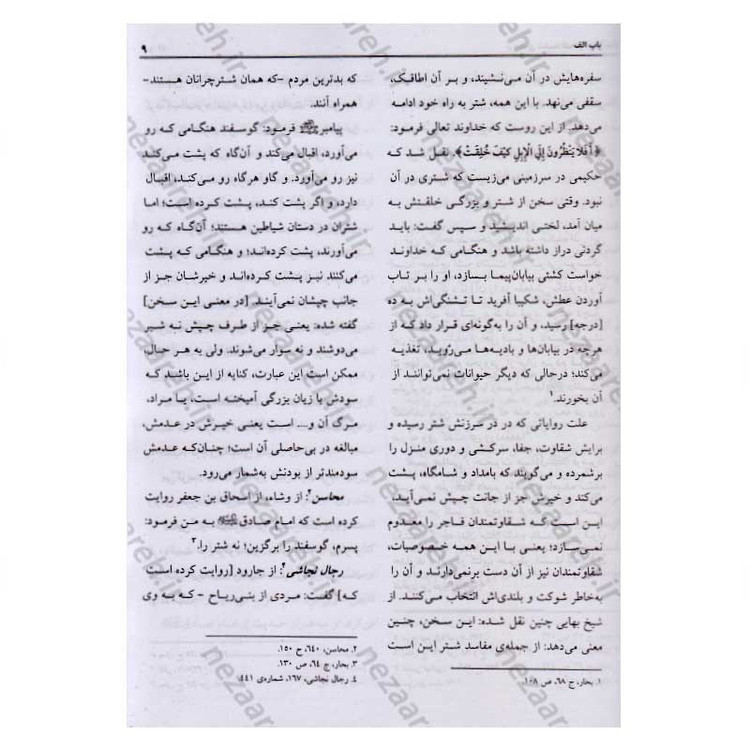 باب الف
۹
سفره‌هایش در آن می‌نشیند، و بر آن اطاقک،
سقفی می‌نهد. با این همه، شتر به راه خود ادامه
می‌دهد. از این روست که خداوند تعالی فرمود:
﴿أَفَلا يَنْظُرُونَ إِلَى الْإِبِلِ كَيْفَ خُلِقَتْ﴾. نقل شد که
حکیمی در سرزمینی می‌زیست که شتری در آن
نبود. وقتی سخن از شتر و بزرگی خلقتش به
میان آمد، لختی اندیشید و سپس گفت: باید
گردنی دراز داشته باشد و هنگامی که خداوند
خواست کشتی بیابان‌پیما بسازد، او را بر تاب
آوردن عطش، شکیبا آفرید تا تشنگی‌اش به ده
[درجه] رسید، و آن را به‌گونه‌ای قرار داد که از
هرچه در بیابان‌ها و بادیه‌ها می‌رُوید، تغذیه
می‌کند؛ درحالی که دیگر حیوانات نمی‌توانند از
آن بخورند.۱
علت روایاتی که در در سرزنش شتر رسیده و
برایش شقاوت، جفا، سرکشی و دوری منزل را
برشمرده و می‌گویند که بامداد و شامگاه، پشت
می‌کند و خیرش جز از جانت چپش نمی‌آید،
این است که شقاوتمندان فاجر را معدوم
نمی‌سازد؛ یعنی با این همه خصوصیات،
شقاوتمندان نیز از آن دست برنمی‌دارند و آن را
به‌خاطر شوکت و بلندی‌اش انتخاب می‌کنند. از
شیخ بهایی چنین نقل شده: این سخن، چنین
معنی می‌دهد: از جمله‌ی مفاسد شتر این است
۱. بحار، ج ۶۸، ص ۱۰۸.
که بدترین مردم –که همان شترچرانان هستند–
همراه آنند.
پیامبرﷺ فرمود: گوسفند هنگامی که رو
می‌آورد، اقبال می‌کند و آن‌گاه که پشت می‌کند
نیز رو می‌آورد. و گاو هرگاه رو می‌کند، اقبال
دارد، و اگر پشت کند، پشت کرده است؛ اما
شتران در دستان شیاطین هستند؛ آن‌گاه که رو
می‌آورند، پشت کرده‌اند؛ و هنگامی که پشت
می‌کنند نیز پشت کرده‌اند و خیرشان جز از
جانب چپشان نمی‌آیند. [در معنی این سخن]
گفته شده: یعنی جز از طرف چپش نه شیر
می‌دوشند و نه سوار می‌شوند. ولی به هر حال،
ممکن است این عبارت، کنایه از این باشد که
سودش با زیان بزرگی آمیخته است، یا مراد،
مرگ آن و... است یعنی خیرش در عدمش،
مبالغه در بی‌حاصلی آن است؛ چنان‌که عدمش
سودمندتر از بودنش به‌شمار می‌رود.
محاسن۲: از وشاء، از اسحاق بن جعفر روایت
کرده است که امام صادق به من فرمود:
پسرم، گوسفند را برگزین؛ نه شتر را.۳
رجال نجاشی۴: از جارود [روایت کرده است
که] گفت: مردی از بنی‌ریاح – که به وی
۲. محاسن، ۶۴۰، ح ۱۵۰.
۳. بحار، ج ۶۴، ص ۱۳۰.
۴. رجال نجاشی، ۱۶۷، شماره‌ی ۴۴۱.
nezaareh.ir